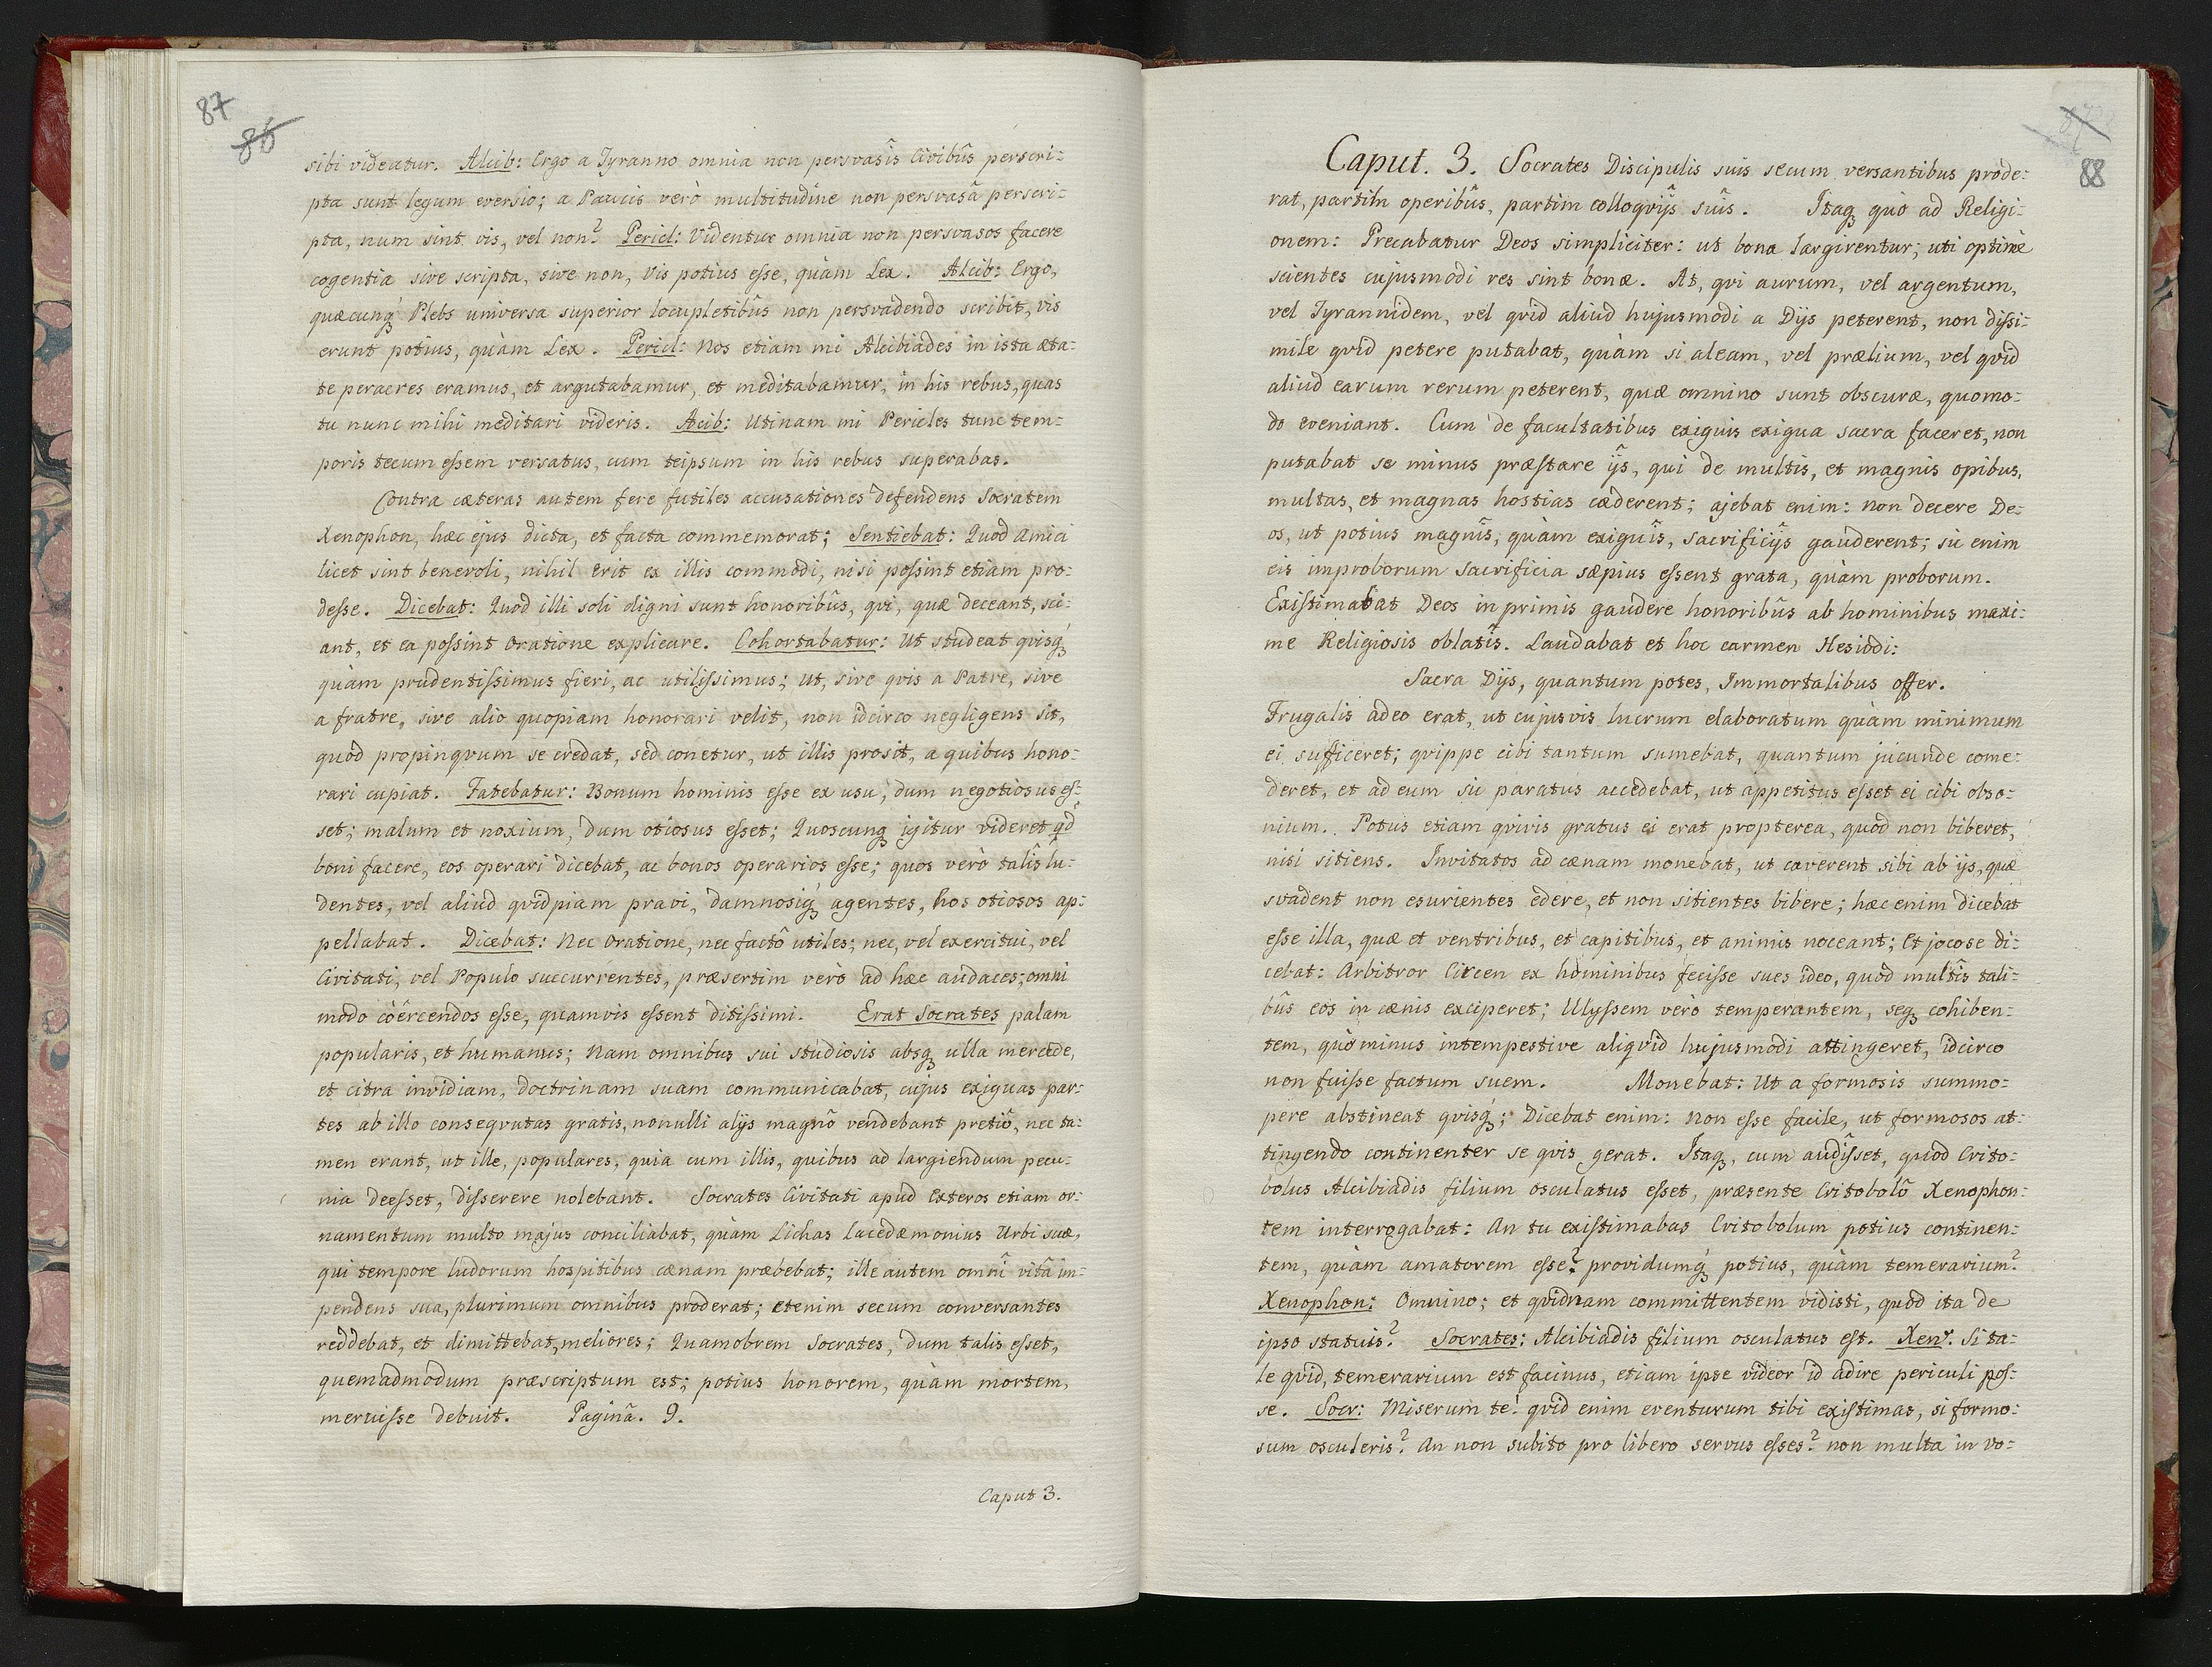 87
86
sibi videatur. Alcib: Ergo a Tyranno omnia non persvasîs Civibûs perscri:
pta sunt legum eversio; a Paucis verò multitudine non persvasâ perscri:
pta, num sint vis, vel non? Pericl: Videntur omnia non persvasos facere
cogentia sive scripta, sive non, Vis potius eſse, quàm Lex. Alcib: Ergo,
quæcunq́ꝫ Plebs universa superior locupletibûs non persvadendo scribit, vis
erunt potius, quàm Lex. Pericl: Nos etiam mi Alcibiades in ista æta:
te peracres eramus, et argutabamur, et meditabamur, in his rebus, quas
tu nunc mihi meditari videris. Acib: Utinam mi Pericles tunc tem:
poris tecum eſsem versatus, cum teipsum in his rebus superabas.
Contra cæteras autem fere futiles accusationes defendens Socratem
Xenophon, hæc ejus dicta, et facta commemorat; Sentiebat: Quod Amici
licet sint benevoli, nihil erit ex illis commodi, nisi poſsint etiam pro:
deſse. Dicebat: Quod illi soli digni sunt honoribûs, qvi, quæ deceant, sci:
ant, et ea poſsint Oratione explicare. Cohortabatur: Ut studeat qvisq́ꝫ
quàm prudentiſsimus fieri, ac utiliſsimus; ut, sive qvis a Patre, sive
a fratre, sive alio quopiam honorari velit, non idcirco negligens sit,
quòd propinqvum se credat, sed conetur, ut illis prosit, a quibus hono:
rari cupiat. Fatebatur: Bonum hominis eſse ex usu, dum negotiosus eſ:
set; malum et noxium, dum otiosus eſset; Quoscunqꝫ igitur videret qd
boni facere, eos operari dicebat, ac bonos operarios eſse; quos verò talîs lu:
dentes, vel aliud qvidpiam pravi, damnosiq́ꝫ agentes, hos otiosos ap:
pellabat. Dicebat: Nec Oratione, nec factô utiles; nec, vel exercitui, vel
Civitati, vel Populo succurrentes, præsertim verò ad hæc audaces; omni
modo coërcendos eſse, quamvis eſsent ditiſsimi. Erat Socrates palam
popularis, et humanus; Nam omnibus sui studiosis absqꝫ ulla mercede,
et citra invidiam, doctrinam suam communicabat, cujus exiguas par:
tes ab illo conseqvutas gratis, nonulli alijs magnô vendebant pretiô, nec ta:
men erant, ut ille, populares, quia cum illis, quibus ad largiendum pecu:
nia deeſset, diſserere nolebant. Socrates Civitati apud Exteros etiam or:
namentum multo majus conciliabat, quàm Lichas Lacedæmonius Urbi suæ,
qui tempore ludorum hospitibus cænam præbebat; ille autem omnî vitâ im:
pendens sua, plurimum omnibus proderat; etenim secum conversantes
reddebat, et dimittebat, meliores; Quamobrem Socrates, dum talis eſset,
quemadmodum præscriptum est; potius honorem, quàm mortem,
meruiſse debuit. Paginâ. 9.
Caput 3.
88
Caput. 3. Socrates Discipulis suis secum versantibus prode:
rat, partim operibûs, partim colloqvijs suîs. Itaqꝫ quò ad Religi:
onem: Precabatur Deos simpliciter: ut bona largirentur; uti optimè
scientes cujusmodi res sint bonæ. At, qvi aurum, vel argentum,
vel Tyrannidem, vel qvid aliud hujusmodi a Dijs peterent, non diſsi:
mile qvid petere putabat, quàm si aleam, vel prælium, vel qvid
aliud earum rerum peterent, quæ omnino sunt obscuræ, quomo:
do eveniant. Cum de facultatibus exiguis exigua sacra faceret, non
putabat se minus præstare ijs, qui de multis, et magnis opibus,
multas, et magnas hostias cæderent; ajebat enim: non decere De:
os, ut potius magnîs, quàm exiguîs, sacrificijs gauderent; sic enim
eis improborum Sacrificia sæpius eſsent grata, quàm proborum.
Existimabat Deos in primis gaudere honoribûs ab hominibus maxi:
me Religiosis oblatîs. Laudabat et hoc carmen Hesiodi:
Sacra Dijs, quantum potes, Immortalibus offer.
Frugalis adeo erat, ut cujusvis lucrum elaboratum quàm minimum
ei sufficeret; qvippe cibi tantum sumebat, quantum jucunde come:
deret, et ad eum sic paratus accedebat, ut appetitus eſset ei cibi obso:
nium. Potus etiam qvivis gratus ei erat propterea, quòd non biberet,
nisi sitiens. Invitatos ad cænam monebat, ut caverent sibi ab ijs, quæ
svadent non esurientes edere, et non sitientes bibere; hæc enim dicebat
eſse illa, quæ et ventribus, et capitibus, et animis noceant; Et jocose di:
cebat: Arbitror Circen ex hominibus feciſse sues ideo, quòd multîs tali:
bûs eos in cænis exciperet; Ulyſsem verò temperantem, seqꝫ cohiben:
tem, quò minus intempestive aliqvid hujusmodi attingeret, idcirco
non fuiſse factum suem. Monebat: Ut a formosis summo:
pere abstineat qvisq́ꝫ; Dicebat enim: Non eſse facile, ut formosos at:
tingendo continenter se qvis gerat. Itaqꝫ, cum audiſset, quòd Crito:
bolus Alcibiadis filium osculatus eſset, præsente Critobolô Xenophon:
tem interrogabat: An tu existimabas Critobolum potius continen:
tem, quàm amatorem eſse? providumq́ꝫ potius, quàm temerarium?
Xenophon: Omnino; et qvidnam committentem vidisti, quòd ita de
ipso statuis? Socrates: Alcibiadis filium osculatus est. Xen: Si ta:
le qvid, temerarium est facinus, etiam ipse videor id adire periculi poſ:
se. Socr: Miserum te! qvid enim eventurum tibi existimas, si formo:
sum osculeris? An non subito pro libero servus eſses? non multa in vo: